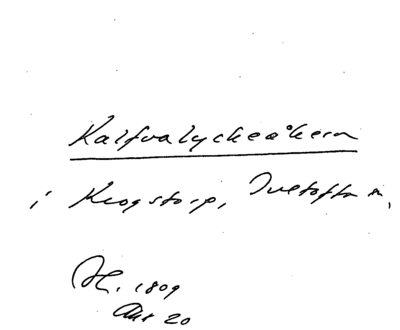 Kalfvalyckeåkern
i Krogstorp, Tvetofta sn,
AL. 1809
Akt 20